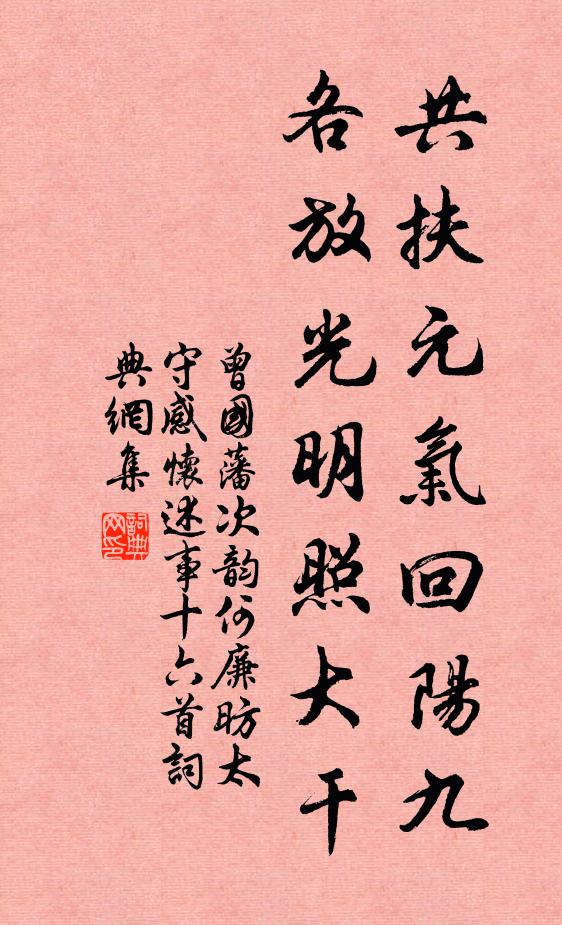 共扶元氣回陽九
各放光明照大千
曾國藩次韵何廉昉太
守感懷述事十六首詞
典網集
詞典
网印